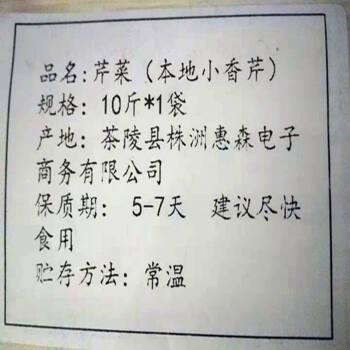 品名:芹菜（本地小香芹）
规格: 10斤*1袋
产地: 茶陵县株洲惠森电子
商务有限公司
保质期: 5-7天 建议尽快
食用
贮存方法: 常温